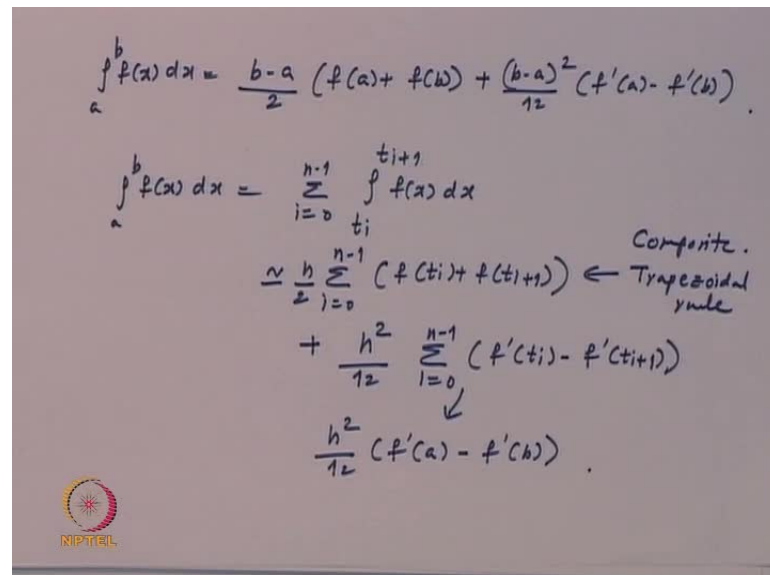 ∫_a^b f(x) dx = (b-a)/2 (f(a) + f(b)) + (b-a)^2/12 (f'(a) - f'(b)).
∫_a^b f(x) dx = Σ_{i=0}^{n-1} ∫_{ti}^{ti+1} f(x) dx
≃ h/2 Σ_{i=0}^{n-1} (f(ti) + f(ti+1)) ← Composite. Trapezoidal rule
+ h^2/12 Σ_{i=0}^{n-1} (f'(ti) - f'(ti+1))
↙
h^2/12 (f'(a) - f'(b)).
NPTEL